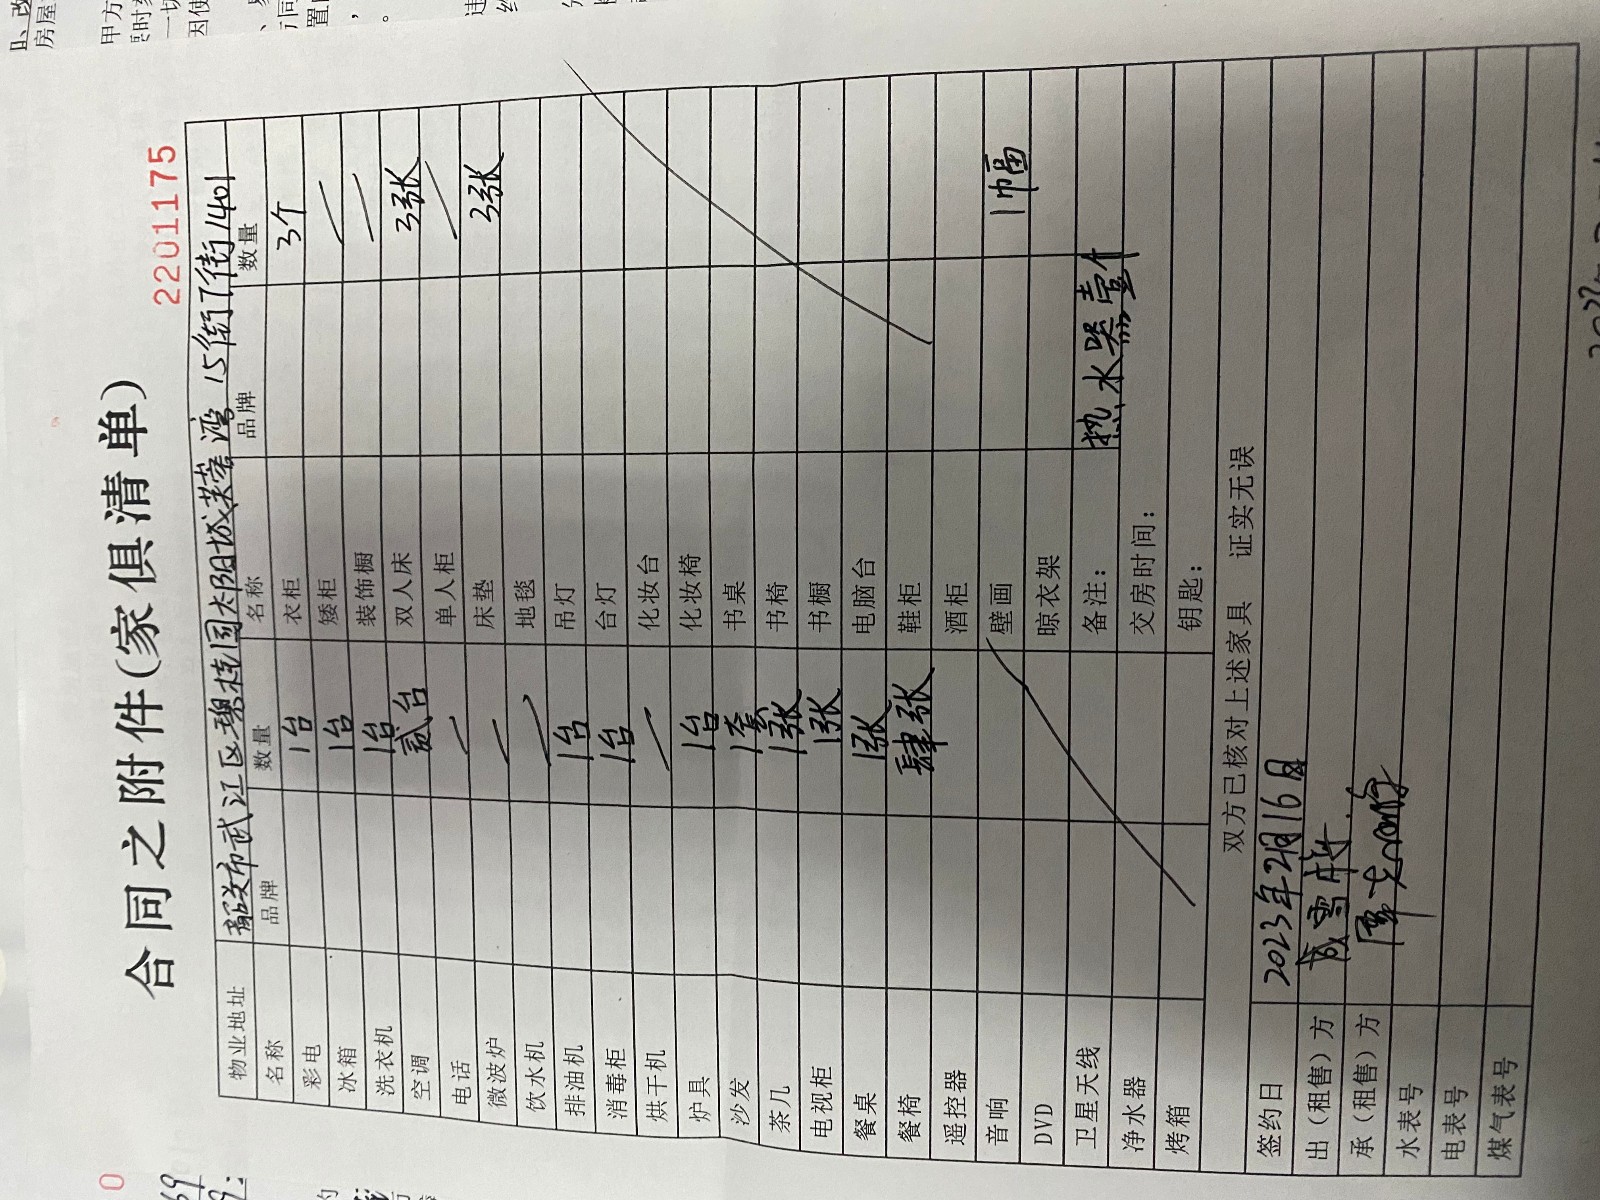 合同之附件(家俱清单)
2201175
物业地址 韶关市武江区碧桂园太阳城芙蓉湾15街7街1401
名称 品牌 数量 名称 品牌 数量
彩电 1台 衣柜 3个
冰箱 1台 矮柜
洗衣机 1台 装饰橱
空调 贰台 双人床 3张
电话 单人柜
微波炉 床垫 3张
饮水机 地毯
排油机 1台 吊灯
消毒柜 1台 台灯
烘干机 化妆台
炉具 1台 化妆椅
沙发 1套 书桌
茶几 1张 书椅
电视柜 1张 书橱
餐桌 1张 电脑台
餐椅 肆张 鞋柜
遥控器 酒柜
音响 壁画 1幅
DVD 晾衣架
卫星天线 备注: 热水器壹个
净水器 交房时间:
烤箱 钥匙:
双方已核对上述家具 证实无误
签约日 2023年2月16日
出(租售)方
承(租售)方
水表号
电表号
煤气表号